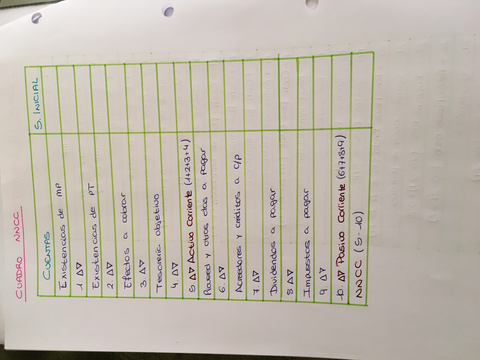 CUADRO NNCC
CUENTAS S. INICIAL
Existencias de MP
1 Δ∇
Existencias de PT
2. Δ∇
Efectos a cobrar
3 Δ∇
Tesorería objetivo
4. Δ∇
5 Δ∇ Activo Corriente (1+2+3+4)
Proveed y otras ctas a pagar
6. Δ∇
Acreedores y créditos a c/p
7. Δ∇
Dividendos a pagar
8 Δ∇
Impuestos a pagar
9 Δ∇
10. Δ∇ Pasivo Corriente (6+7+8+9)
NNCC (5-10)